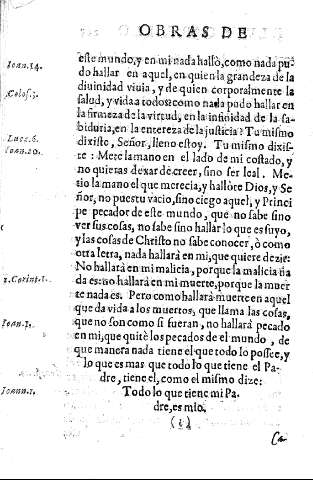 OBRAS DE
este mundo, y en mi nada hallò, como nada pudo
do hallar en aquel, en quien la grandeza de la
diuinidad viuia, y de quien corporalmente la
salud, y vida a todos? como nada pudo hallar en
la firmeza de la virtud, en la infinidad de la sa-
biduria, en la entereza de la justicia? Tu mismo
dixiste, Señor, lleno estoy. Tu mismo dixis-
te: Mete la mano en el lado de mi costado, y
no quieras dexar de creer, sino ser leal. Me-
tio la mano el que merecia, y hallòte Dios, y Se
ñor, no puesto vacio, sino ciego aquel, y Princi
pe pecador de este mundo, que no sabe sino
ver sus cosas, no sabe sino hallar lo que es suyo,
y las cosas de Christo no sabe conocer, ò como
otra letra, nada hallarà en mi, que quiere dezir:
No hallarà en mi malicia, porque la malicia na
da es: no hallarà en mi muerte, porque la muer
te nada es. Pero como hallarà muerte en aquel
que da vida a los muertos, que llama las cosas,
que no son como si fueran, no hallarà pecado
en mi, que quitè los pecados de el mundo, de
que manera nada tiene el que todo lo possee, y
lo que es mas que todo lo que tiene el Pa-
dre, tiene el, como el mismo dize:
Todo lo que tiene mi Pa-
dre, es mio.
Ioan. 14.
Colos. 3.
Luc. 6.
Ioan. 20.
1. Corint. 1.
Ioan. 1.
Ioann. 1.
Ca-